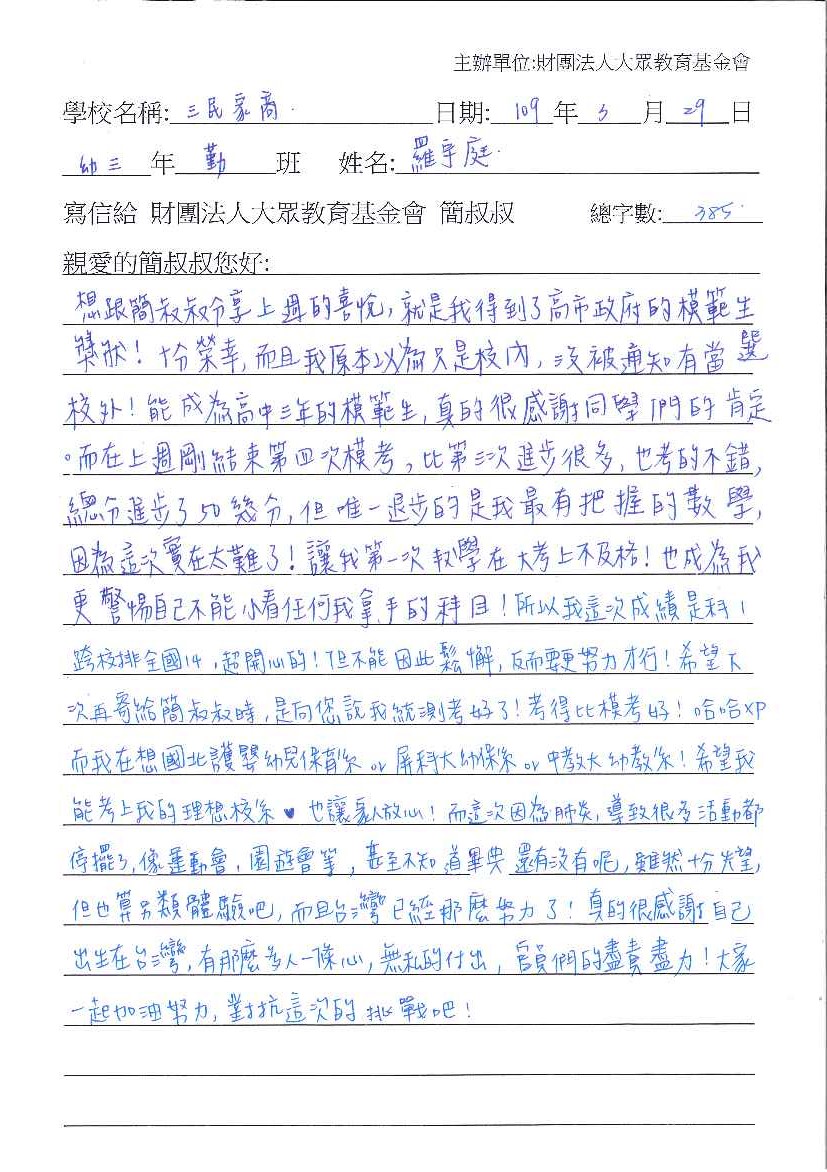 主辦單位:財團法人大眾教育基金會
學校名稱: 三民家商 日期: 109 年 3 月 29 日
幼三 年 勤 班 姓名: 羅宇庭
寫信給 財團法人大眾教育基金會 簡叔叔 總字數: 385
親愛的簡叔叔您好:
想跟簡叔叔分享上週的喜悅,就是我得到了高市政府的模範生
獎狀!十分榮幸,而且我原本以為只是校內,沒被通知有當選
校外!能成為高中三年的模範生,真的很感謝同學們的肯定
。而在上週剛結束第四次模考,比第三次進步很多,也考的不錯,
總分進步了50幾分,但唯一退步的是我最有把握的數學,
因為這次實在太難了!讓我第一次數學在大考上不及格!也成為我
更警惕自己不能小看任何我拿手的科目!所以我這次成績是科1
跨校排全國14,超開心的!但不能因此鬆懈,反而要更努力才行!希望下
次再寄給簡叔叔時,是向您說我統測考好了!考得比模考好!哈哈XP
而我在想國北護嬰幼兒保育系 or 屏科大幼保系 or 中教大幼教系!希望我
能考上我的理想校系♥也讓家人放心!而這次因為肺炎,導致很多活動都
停擺了,像運動會,園遊會等,甚至不知道畢典還有沒有呢,雖然十分失望,
但也算另類體驗吧,而且台灣已經那麼努力了!真的很感謝自己
出生在台灣,有那麼多人一條心,無私的付出,官員們的盡責盡力!大家
一起加油努力,對抗這次的挑戰吧!